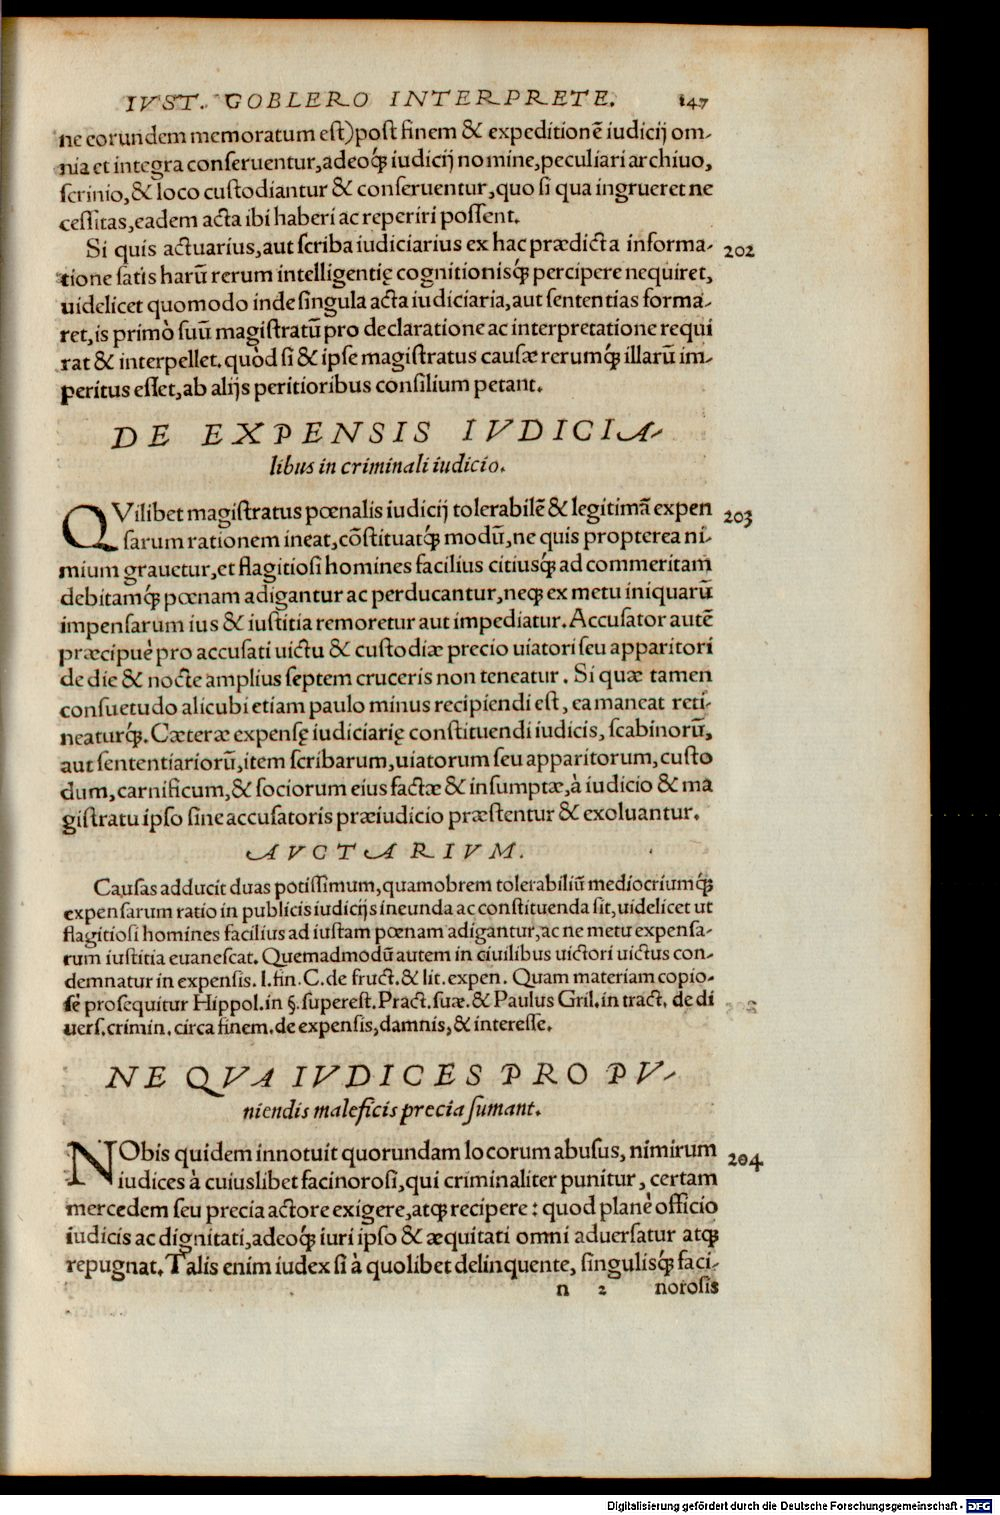 IVST. GOBLERO INTERPRETE. 147
ne eorundem memoratum est) post finem & expeditionē iudicij om-
nia et integra conseruentur, adeoq́; iudicij nomine, peculiari archiuo,
scrinio, & loco custodiantur & conseruentur, quo si qua ingrueret ne
cessitas, eadem acta ibi haberi ac reperiri possent.
Si quis actuarius, aut scriba iudiciarius ex hac prædicta informa- 202
tione satis harū rerum intelligentię cognitionisq́; percipere nequiret,
uidelicet quomodo inde singula acta iudiciaria, aut sententias forma-
ret, is primò suū magistratū pro declaratione ac interpretatione requi
rat & interpellet. quòd si & ipse magistratus causæ rerumq́; illarū im-
peritus esset, ab alijs peritioribus consilium petant.
DE EXPENSIS IVDICIA-
libus in criminali iudicio.
QVilibet magistratus pœnalis iudicij tolerabilē & legitimā expen 203
sarum rationem ineat, cōstituatq́; modū, ne quis propterea ni-
mium grauetur, et flagitiosi homines facilius citiusq́; ad commeritam
debitamq́; pœnam adigantur ac perducantur, neq; ex metu iniquarū
impensarum ius & iustitia remoretur aut impediatur. Accusator autē
præcipuè pro accusati uictu & custodiæ precio uiatori seu apparitori
de die & nocte amplius septem cruceris non teneatur. Si quæ tamen
consuetudo alicubi etiam paulo minus recipiendi est, ea maneat reti-
neaturq́;. Cæteræ expensę iudiciarię constituendi iudicis, scabinorū,
aut sententiariorū, item scribarum, uiatorum seu apparitorum, custo
dum, carnificum, & sociorum eius factæ & insumptæ, à iudicio & ma
gistratu ipso sine accusatoris præiudicio præstentur & exoluantur.
AVCTARIVM.
Causas adducit duas potissimum, quamobrem tolerabiliū mediocriumq́;
expensarum ratio in publicis iudicijs ineunda ac constituenda sit, uidelicet ut
flagitiosi homines facilius ad iustam pœnam adigantur, ac ne metu expensa-
rum iustitia euanescat. Quemadmodū autem in ciuilibus uictori uictus con-
demnatur in expensis. l. fin. C. de fruct. & lit. expen. Quam materiam copio-
sè prosequitur Hippol. in §. superest. Pract. suæ. & Paulus Gril. in tract. de di
uers. crimin. circa finem. de expensis, damnis, & interesse.
NE QVA IVDICES PRO PV-
niendis maleficis precia sumant.
NObis quidem innotuit quorundam locorum abusus, nimirum 204
iudices à cuiuslibet facinorosi, qui criminaliter punitur, certam
mercedem seu precia actore exigere, atq; recipere: quod planè officio
iudicis ac dignitati, adeoq́; iuri ipso & æquitati omni aduersatur atq;
repugnat. Talis enim iudex si à quolibet delinquente, singulisq́; faci-
n 2 norosis
Digitalisierung gefördert durch die Deutsche Forschungsgemeinschaft - DFG